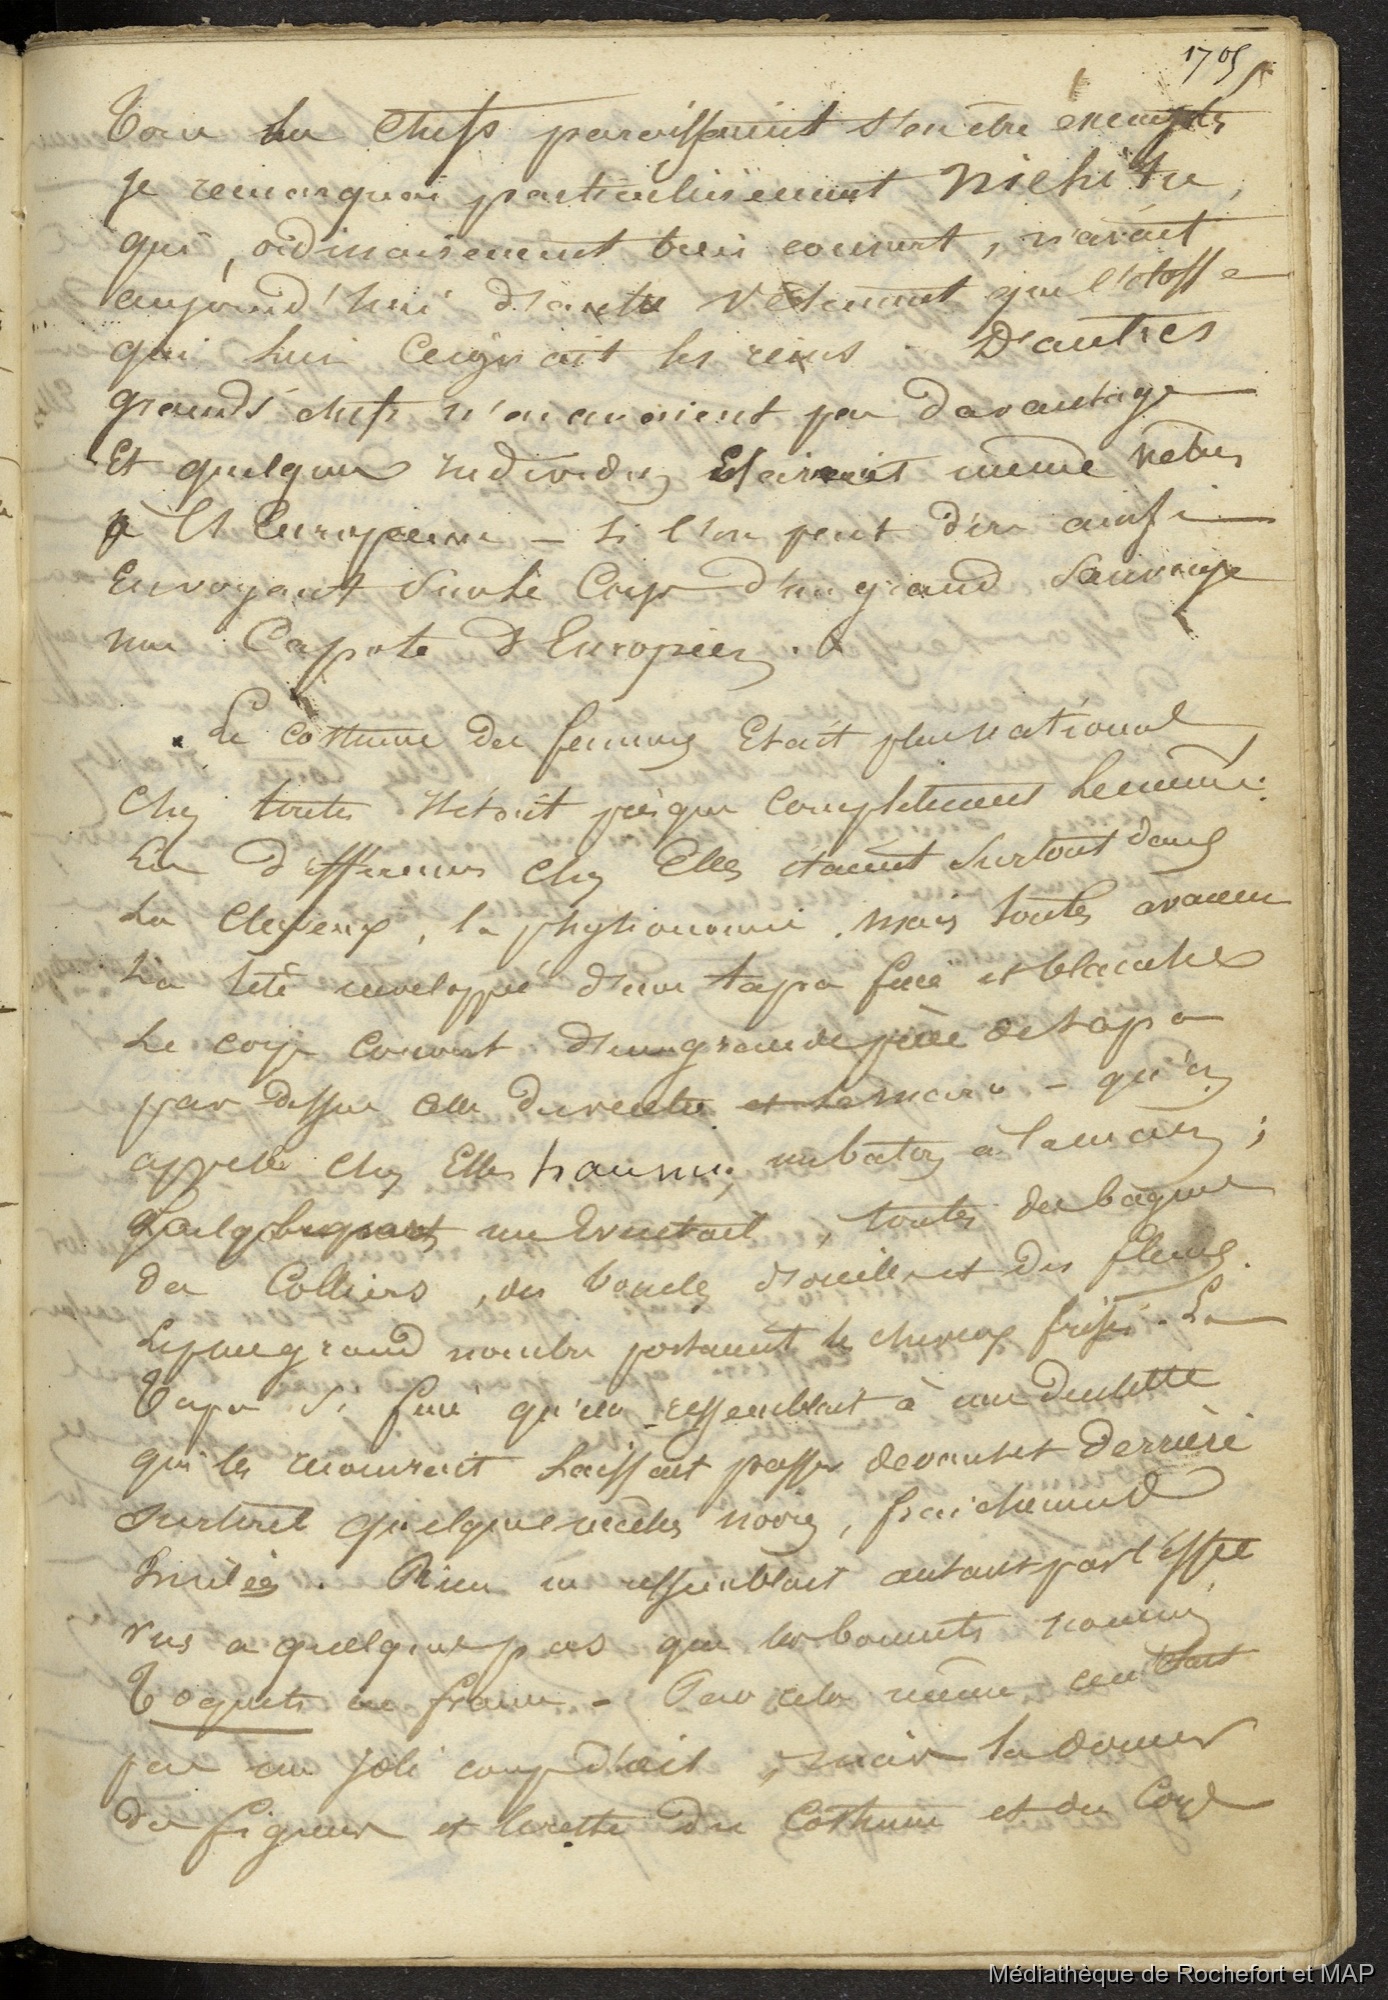 1705
Tous les Chefs paraissaient s'en être exempts
je remarquai particulièrement Niehitu,
qui, ordinairement bien couvert, n'avait
aujourd'hui d'autre vêtement que l'étoffe
qui lui Ceignait les reins. D'autres
grands chefs n'en avaient pas davantage
Et quelques individus Etaient même vetus
à l'Européenne — si l'on peut dire ainsi
En voyant sur le Corps d'un grand Sauvage
une Capote d'Européen.
Le costume des femmes Etait plus national
Chez toutes il était presque complètement le même.
Les différences chez Elles étaient surtout dans
les cheveux, la physionomie. mais toutes avaient
la tête enveloppée d'une tapa fine et blanche
le corps couvert d'une grande pièce de tapa
par dessus celle du ventre et — qu'on
appelle chez Elles haumi, un baton à la main;
un Eventail, toutes des bagues
des Colliers, des boucles d'oreilles et des fleurs.
Le plus grand nombre portaient les cheveux frisés. La
Tapa si fine qu'elle ressemblait à une dentelle
qui les recouvrait laissait passer devant et derrière
surtout quelques mèches noires, fraichement
huilées. Rien ne ressemblait autant par l'effet
vus à quelques pas que les bonnets nommés
Toquets en france — Par cela même c'en était
pas un joli coup d'œil, mais la douceur
des figures et le reste du Costume et du Corps
Médiathèque de Rochefort et MAP